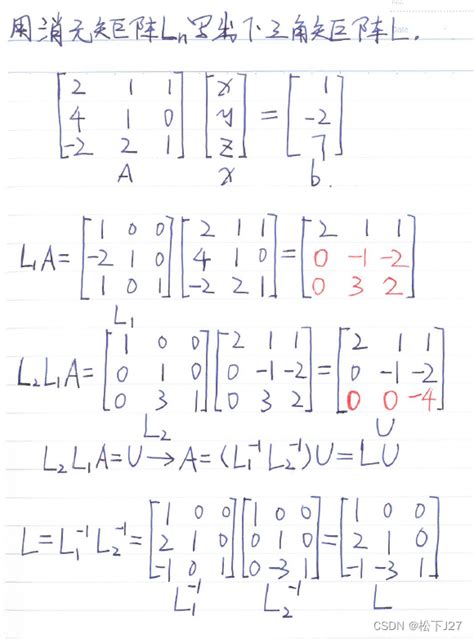 用消元矩阵Ln写出下三角矩阵L.
[2 1 1; 4 1 0; -2 2 1] [x; y; z] = [1; -2; 7]
A x b.
L₁A = [1 0 0; -2 1 0; 1 0 1] [2 1 1; 4 1 0; -2 2 1] = [2 1 1; 0 -1 -2; 0 3 2]
L₁
L₂L₁A = [1 0 0; 0 1 0; 0 3 1] [2 1 1; 0 -1 -2; 0 3 2] = [2 1 1; 0 -1 -2; 0 0 -4]
L₂ U
L₂L₁A = U → A = (L₁⁻¹L₂⁻¹)U = LU
L = L₁⁻¹L₂⁻¹ = [1 0 0; 2 1 0; -1 0 1] [1 0 0; 0 1 0; 0 -3 1] = [1 0 0; 2 1 0; -1 -3 1]
L₁⁻¹ L₂⁻¹ L
CSDN @松下J27